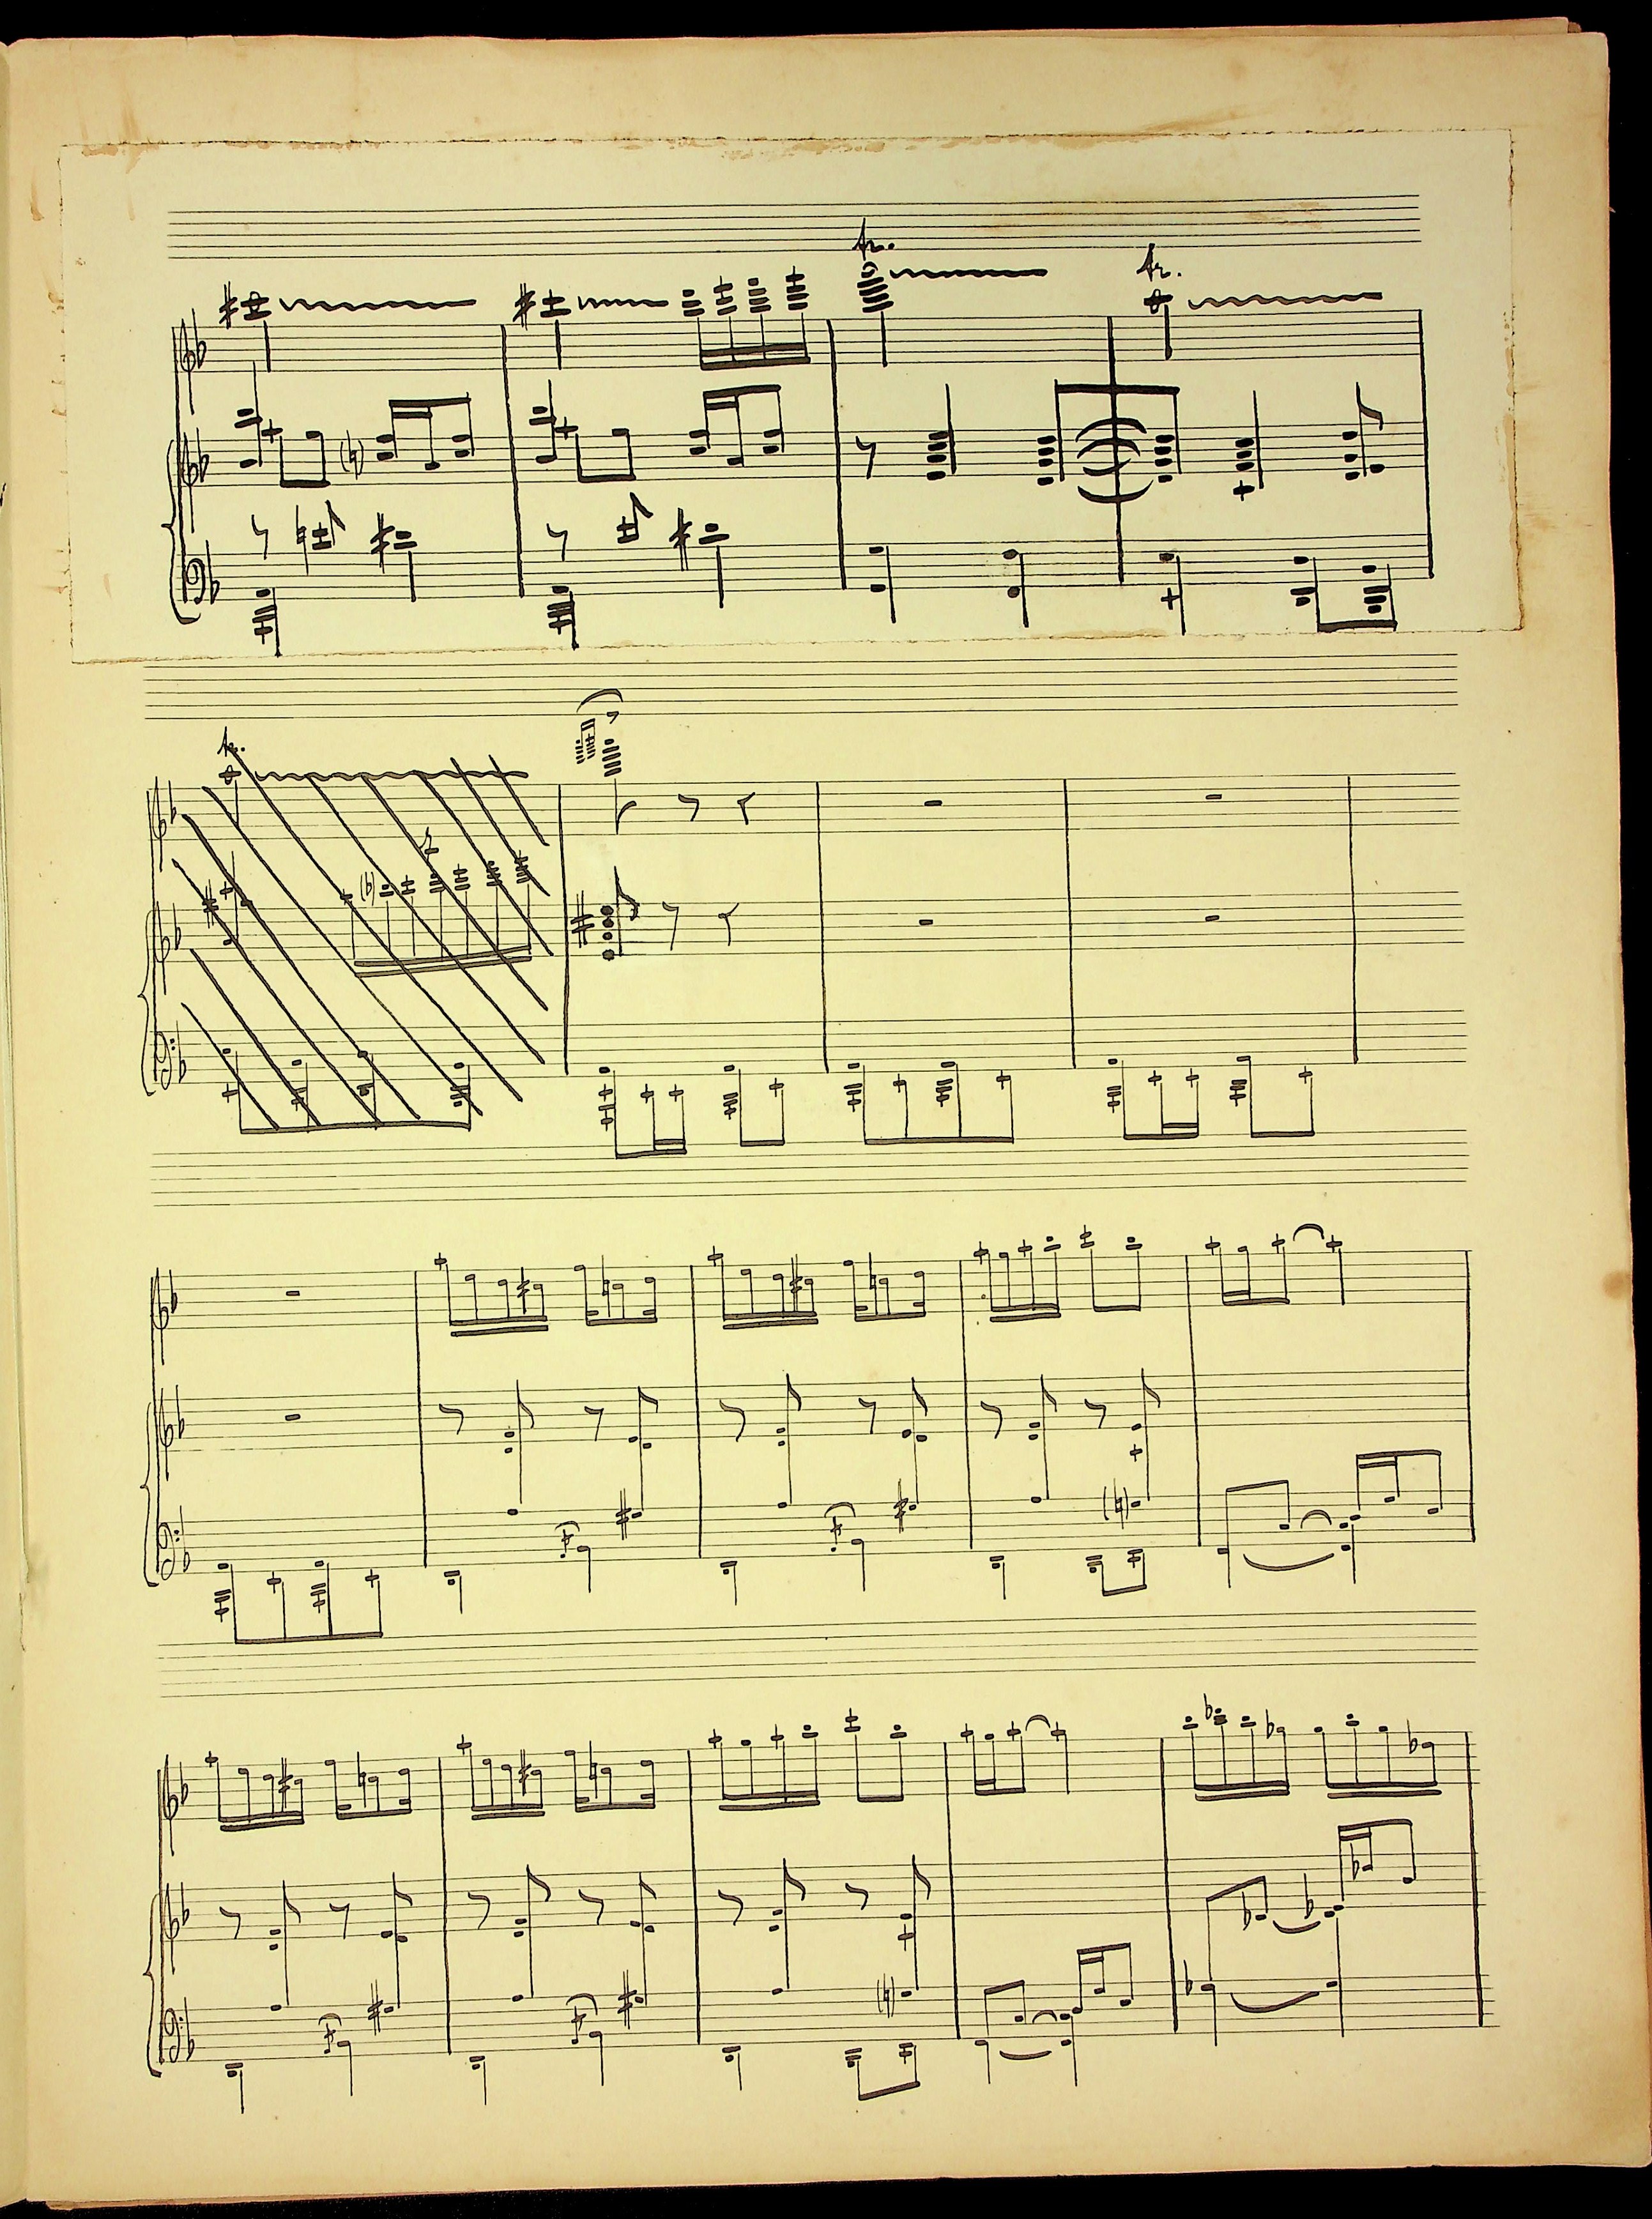 tr.
tr.
tr.